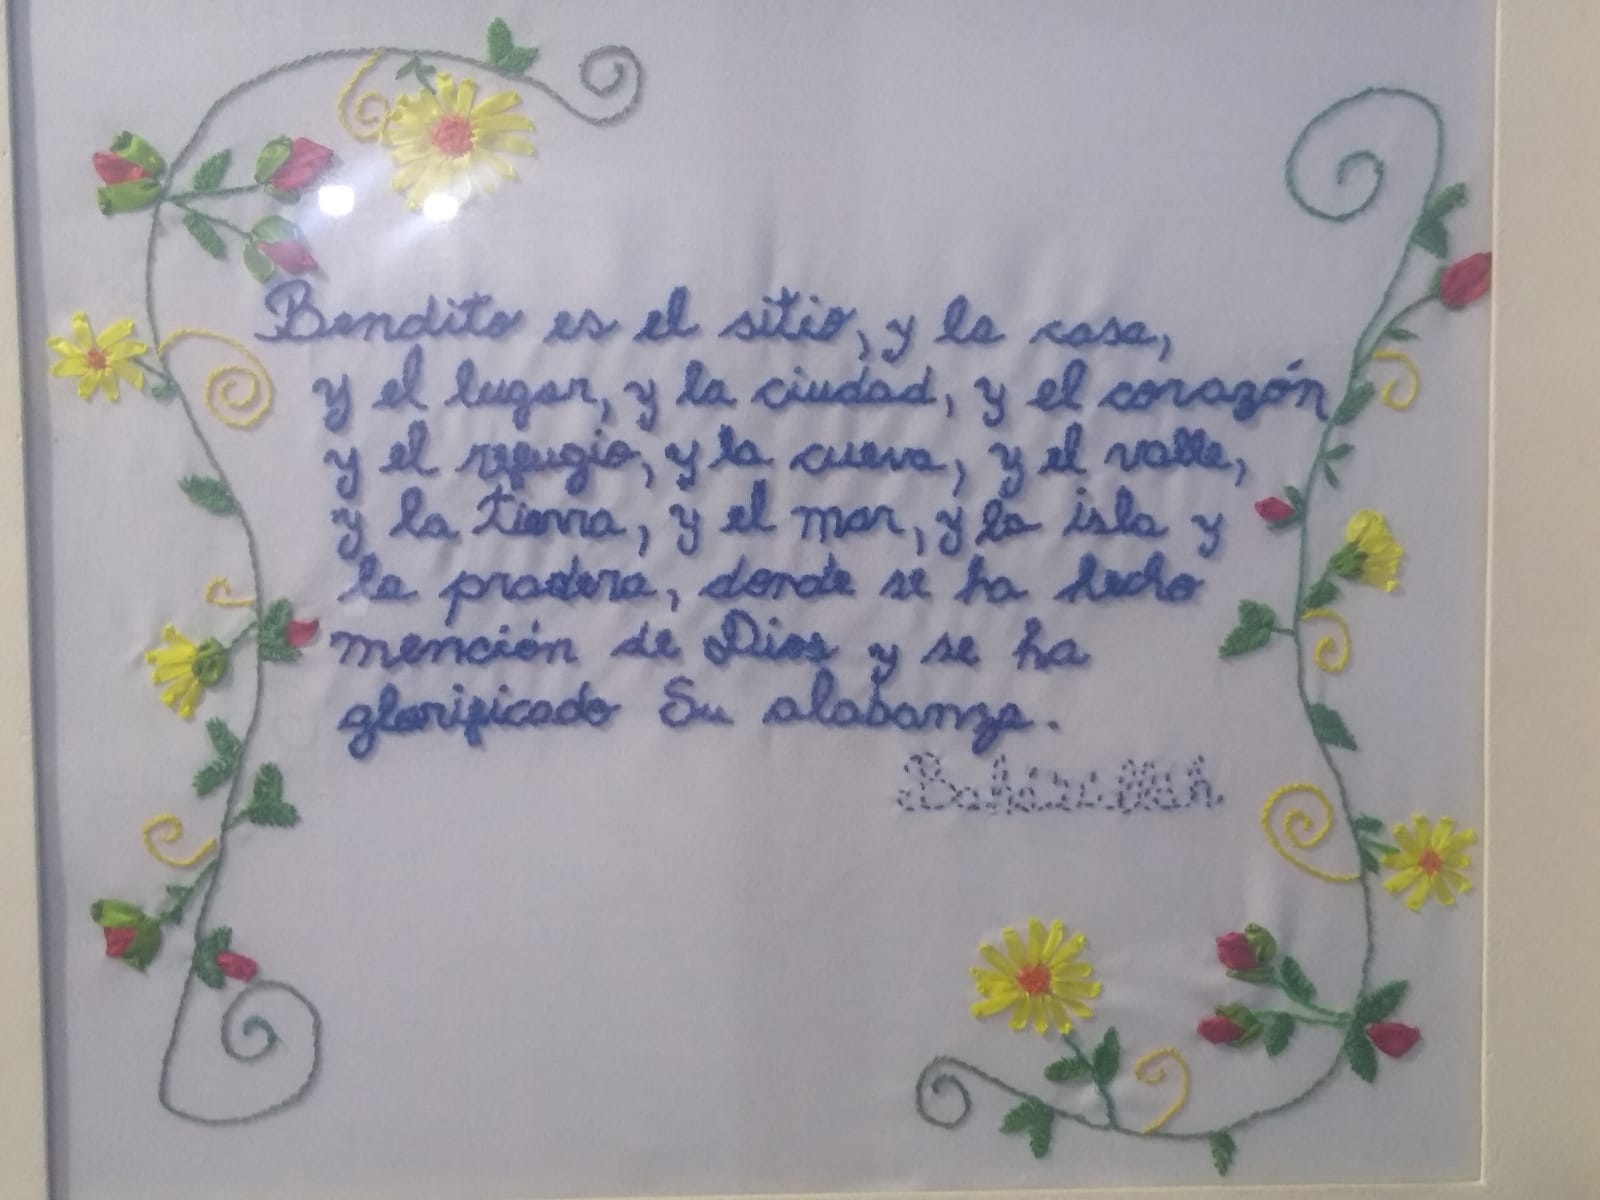 Bendito es el sitio, y la casa,
y el lugar, y la ciudad, y el corazón
y el refugio, y la cueva, y el valle,
y la tierra, y el mar, y la isla y
la pradera, donde se ha hecho
mención de Dios y se ha
glorificado Su alabanza.
Bahá'u'lláh